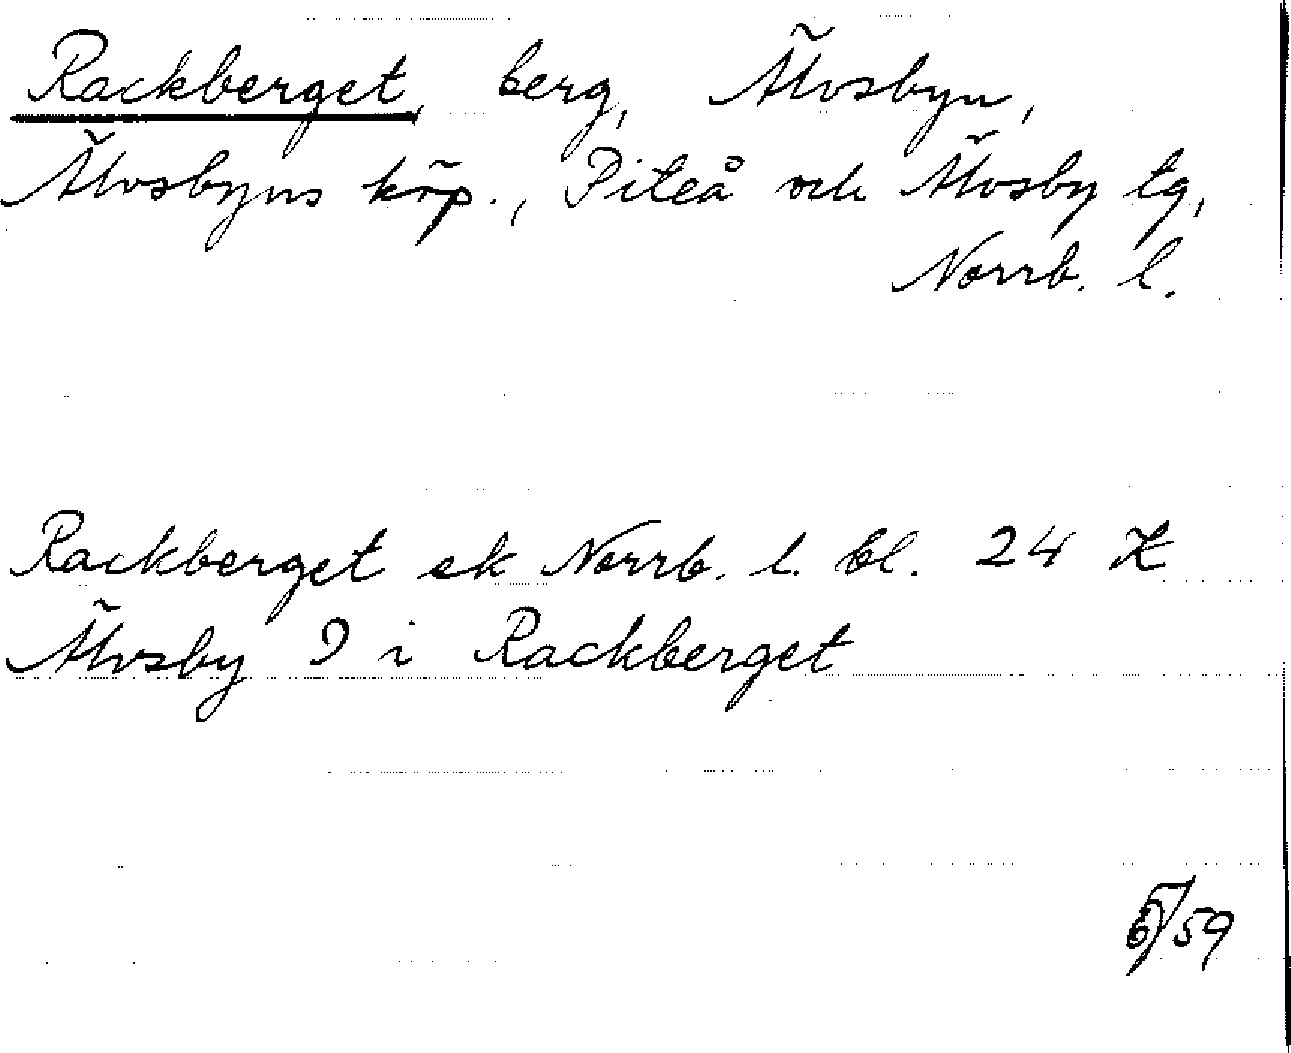 Rackberget, berg, Älvsbyn,
Älvsbyns köp., Piteå och Älvsby tg,
Norrb. l.
Rackberget ek Norrb. l. bl. 24
Älvsby 9 i Rackberget
/59